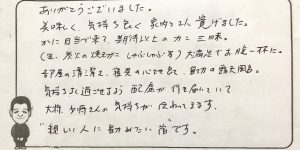 ありがとうございました。
美味しく、気持ち良く 家内と2人 寛げました。
かに目当で来て、期待以上の カニ三昧。
(生、炭火の焼きがに しゃぶしゃぶ等) 大満足でお腹一杯に。
部屋の清潔さ、寝具の心地も良く、貸切の露天風呂。
気持ちよく過ごせるよう 配慮が行き届いていて
大将、女将さんの気持ちが 伝わってきます。
"親しい人に勧めたい宿"です。